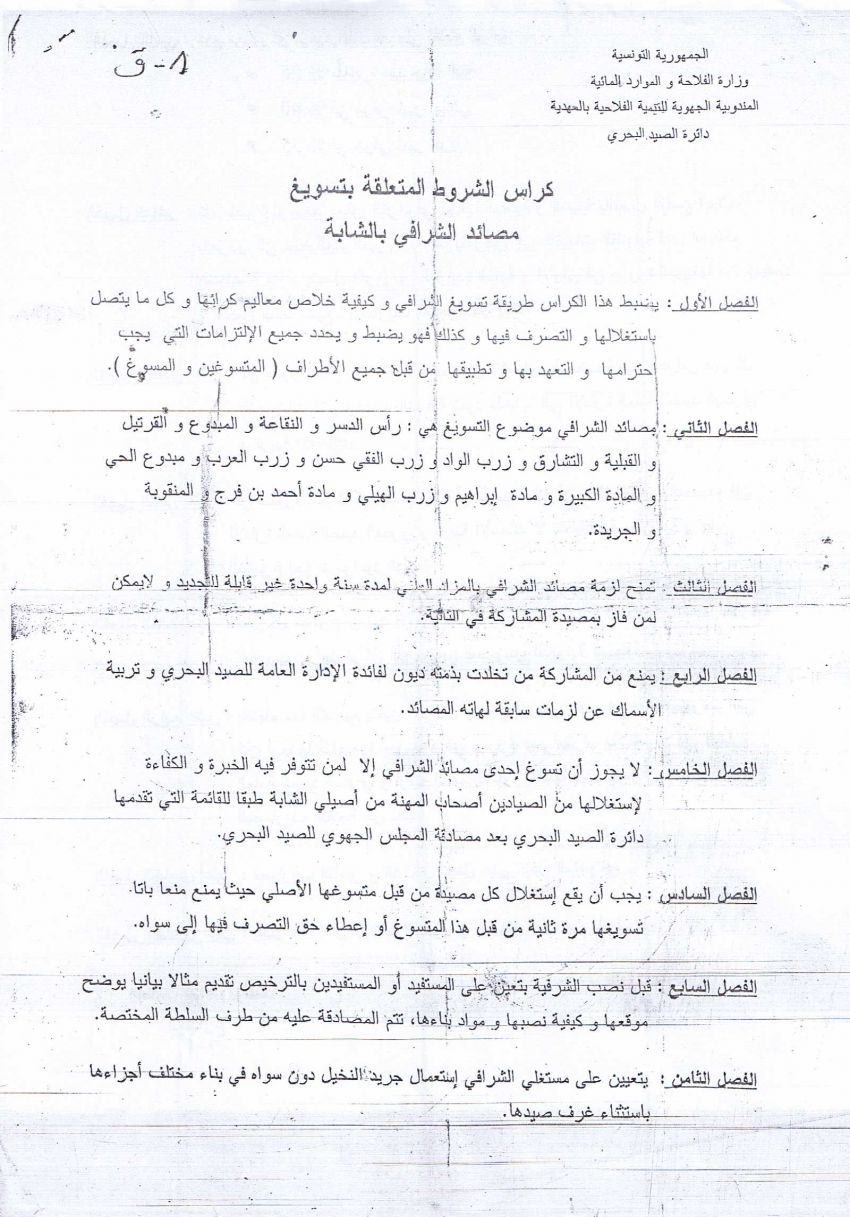 ق - 1
الجمهورية التونسية
وزارة الفلاحة و الموارد المائية
المندوبية الجهوية للتنمية الفلاحية بالمهدية
دائرة الصيد البحري
كراس الشروط المتعلقة بتسويغ
مصائد الشرافي بالشابة
الفصل الأول : يضبط هذا الكراس طريقة تسويغ الشرافي و كيفية خلاص معاليم كرائها و كل ما يتصل
باستغلالها و التصرف فيها و كذلك فهو يضبط و يحدد جميع الإلتزامات التي يجب
احترامها و التعهد بها و تطبيقها من قبل جميع الأطراف ( المتسوغين و المسوغ ).
الفصل الثاني : مصائد الشرافي موضوع التسويغ هي : رأس الدسر و النقاعة و المبدوع و القرتيل
و القبلية و التشارق و زرب الواد و زرب الفقي حسن و زرب العرب و مبدوع الحي
و المادة الكبيرة و مادة إبراهيم و زرب الهيلي و مادة أحمد بن فرج و المنقوبة
و الجريدة.
الفصل الثالث : تمنح لزمة مصائد الشرافي بالمزاد العلني لمدة سنة واحدة غير قابلة للتجديد و لايمكن
لمن فاز بمصيدة المشاركة في الثانية.
الفصل الرابع : يمنع من المشاركة من تخلدت بذمته ديون لفائدة الإدارة العامة للصيد البحري و تربية
الأسماك عن لزمات سابقة لهاته المصائد.
الفصل الخامس : لا يجوز أن تسوغ إحدى مصائد الشرافي إلا لمن تتوفر فيه الخبرة و الكفاءة
لإستغلالها من الصيادين أصحاب المهنة من أصيلي الشابة طبقا للقائمة التي تقدمها
دائرة الصيد البحري بعد مصادقة المجلس الجهوي للصيد البحري.
الفصل السادس : يجب أن يقع إستغلال كل مصيدة من قبل متسوغها الأصلي حيث يمنع منعا باتا.
تسويغها مرة ثانية من قبل هذا المتسوغ أو إعطاء حق التصرف فيها إلى سواه.
الفصل السابع : قبل نصب الشرفية يتعين على المستفيد أو المستفيدين بالترخيص تقديم مثالا بيانيا يوضح
موقعها و كيفية نصبها و مواد بناءها، تتم المصادقة عليه من طرف السلطة المختصة.
الفصل الثامن : يتعيين على مستغلي الشرافي إستعمال جريد النخيل دون سواه في بناء مختلف أجزاءها
باستثناء غرف صيدها.